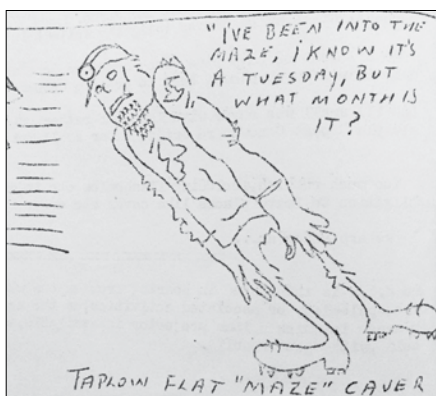 "I'VE BEEN INTO THE
MAZE, I KNOW IT'S
A TUESDAY, BUT
WHAT MONTH IS
IT?
TAPLOW FLAT "MAZE" CAVER